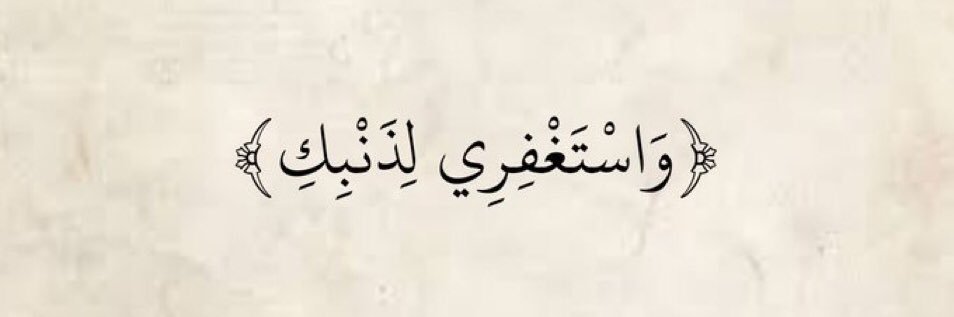 ﴿وَاسْتَغْفِرِي لِذَنْبِكِ﴾